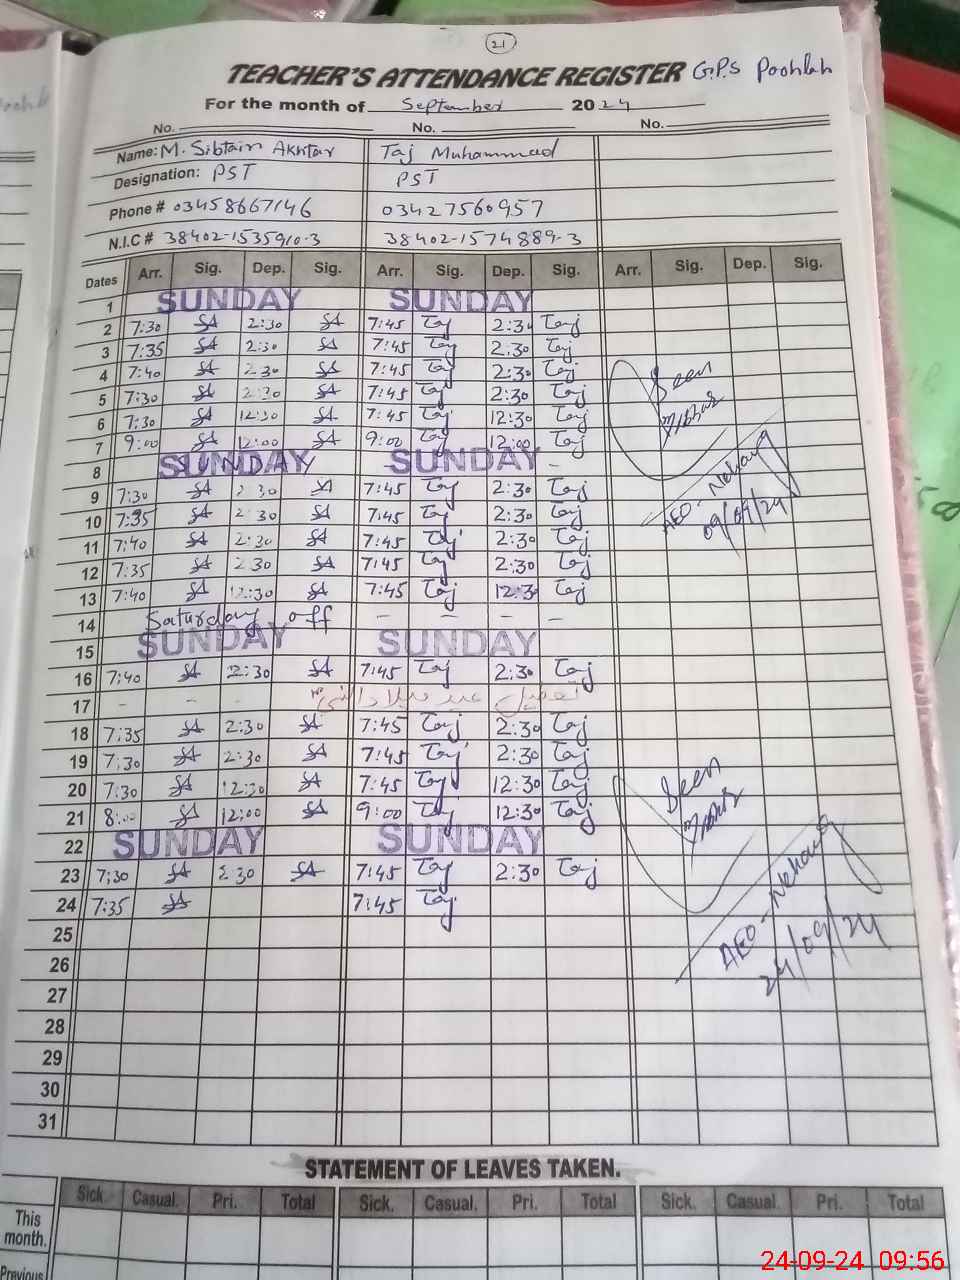 21
TEACHER'S ATTENDANCE REGISTER G.P.S Poohlah
For the month of September 2024
No. No. No.
Name: M. Sibtain Akhtar Taj Muhammad
Designation: PST PST
Phone # 03458667146 03427560957
N.I.C # 38402-1535910-3 38402-1574889-3
Dates Arr. Sig. Dep. Sig. Arr. Sig. Dep. Sig. Arr. Sig. Dep. Sig.
1 SUNDAY SUNDAY
2 7:30 SA 2:30 SA 7:45 Taj 2:30 Taj
3 7:35 SA 2:30 SA 7:45 Taj 2:30 Taj
4 7:40 SA 2:30 SA 7:45 Taj 2:30 Taj
5 7:30 SA 2:30 SA 7:45 Taj 2:30 Taj
6 7:30 SA 12:30 SA 7:45 Taj 12:30 Taj
7 9:00 SA 12:00 SA 9:00 Taj 12:00 Taj
8 SUNDAY SUNDAY -
Seen
AEO-Nehang
09/09/24
9 7:30 SA 2:30 SA 7:45 Taj 2:30 Taj
10 7:35 SA 2:30 SA 7:45 Taj 2:30 Taj
11 7:40 SA 2:30 SA 7:45 Taj 2:30 Taj
12 7:35 SA 2:30 SA 7:45 Taj 2:30 Taj
13 7:40 SA 12:30 SA 7:45 Taj 12:30 Taj
14 Saturday off - - - -
15 SUNDAY SUNDAY
16 7:40 SA 2:30 SA 7:45 Taj 2:30 Taj
17 - - - تعطیل عید میلاد النبیؐ
18 7:35 SA 2:30 SA 7:45 Taj 2:30 Taj
19 7:30 SA 2:30 SA 7:45 Taj 2:30 Taj
20 7:30 SA 12:30 SA 7:45 Taj 12:30 Taj
21 8:00 SA 12:00 SA 9:00 Taj 12:30 Taj
22 SUNDAY SUNDAY
23 7:30 SA 2:30 SA 7:45 Taj 2:30 Taj
24 7:35 SA 7:45 Taj
Seen
AEO-Nehang
24/09/24
25
26
27
28
29
30
31
STATEMENT OF LEAVES TAKEN.
Sick. Casual. Pri. Total Sick. Casual. Pri. Total Sick. Casual. Pri. Total
This month.
Previous
24-09-24 09:56